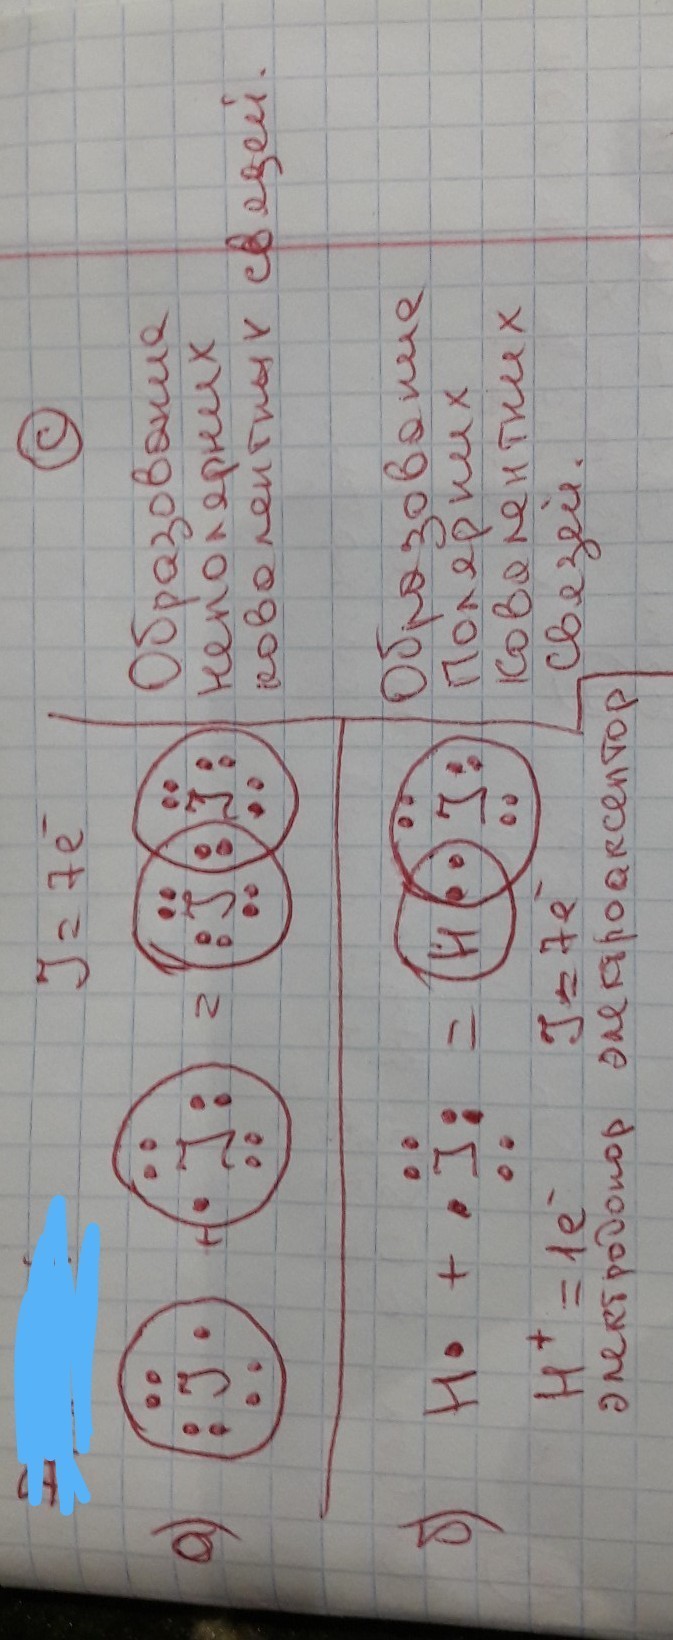 J = 7ē
С
а) J + J = J J
Образование
неполярних
ковалентных связей.
б) H + J = H J
Образование
Полярних
Ковалентних
связей.
H⁺ = 1ē J = 7ē
электродонор электроаксептор